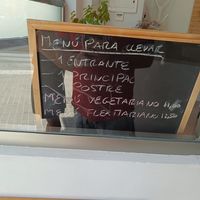 MENÚ PARA LLEVAR
1 ENTRANTE
1 PRINCIPAL
1 POSTRE
MENÚ VEGETARIANO
MENÚ FLEXITARIANO 12,50